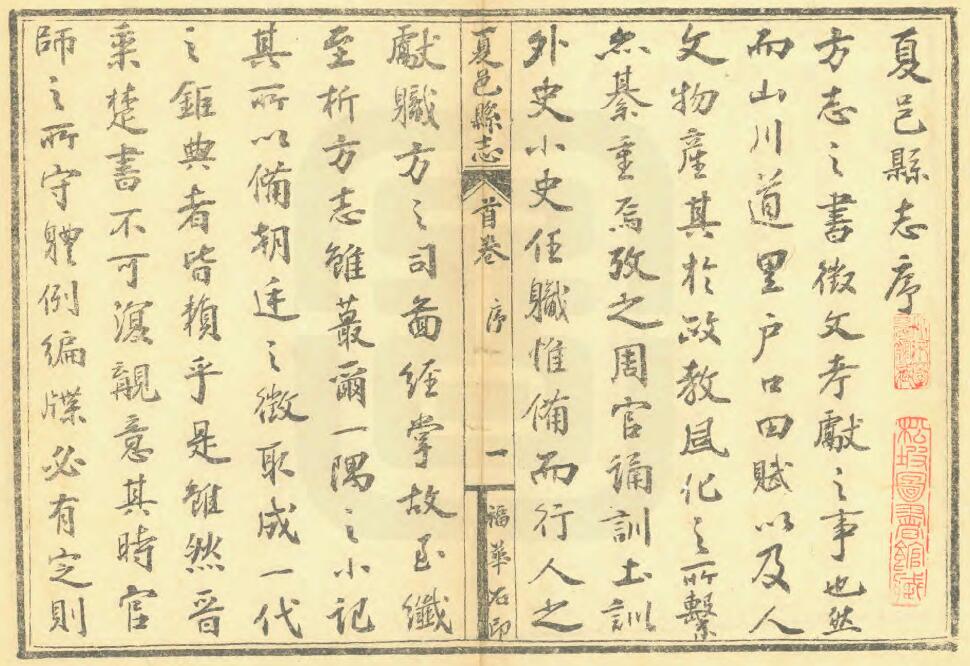 夏邑縣志序
方志之書徵文考獻之事也然
而山川道里戶口田賦以及人
文物產其於政教風化之所繫
尤綦重焉攷之周官誦訓土訓
外史小史任職惟備而行人之
夏邑縣志
首卷
序
一
福華石印
獻職方之司圖經掌故至纖
至析方志雖蕞爾一隅之小記
其所以備朝廷之徵取成一代
之鉅典者皆賴乎是雖然晋
乗楚書不可復覯意其時官
師之所守軆例編牒必有定則
松坡圖書館藏